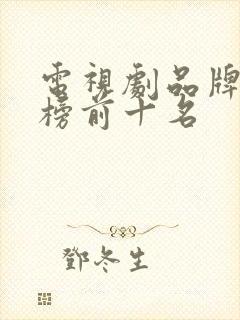 電視劇品牌
榜前十名
鄧冬生